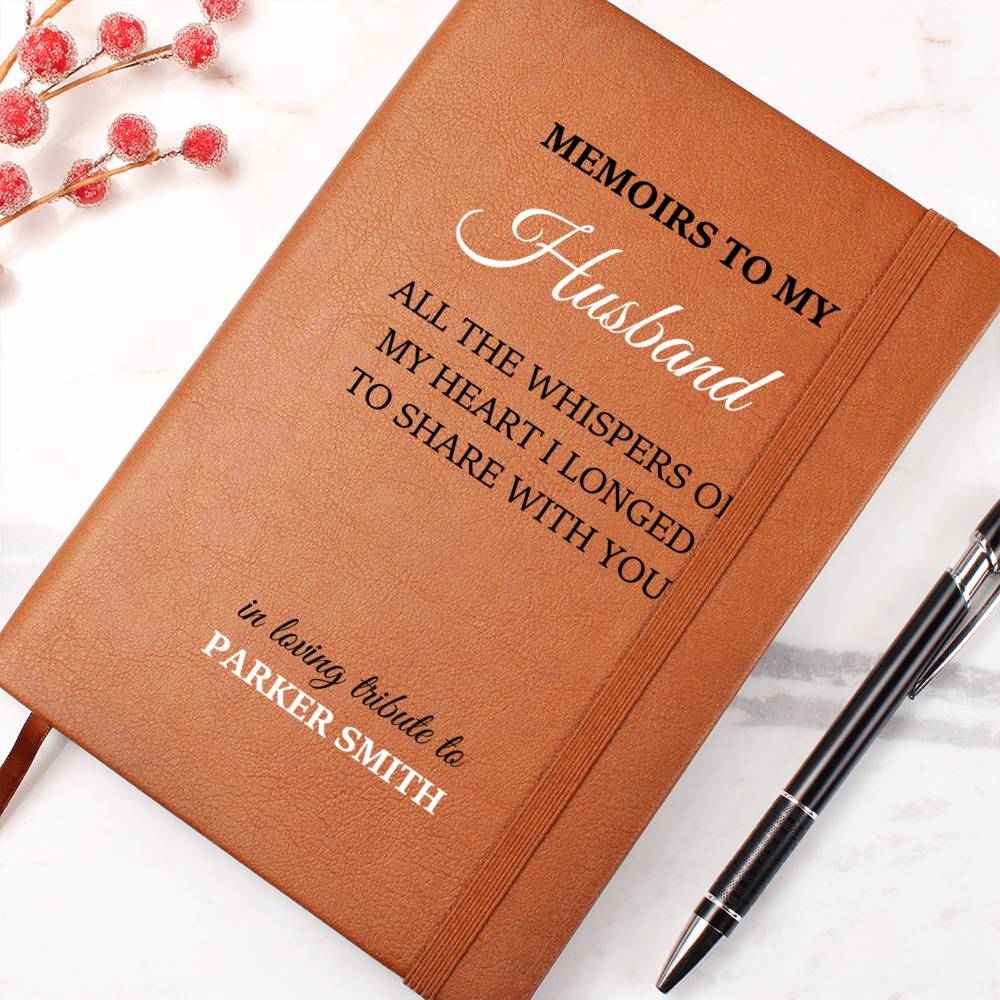 MEMOIRS TO MY
Husband
ALL THE WHISPERS OF
MY HEART I LONGED
TO SHARE WITH YOU
in loving tribute to
PARKER SMITH